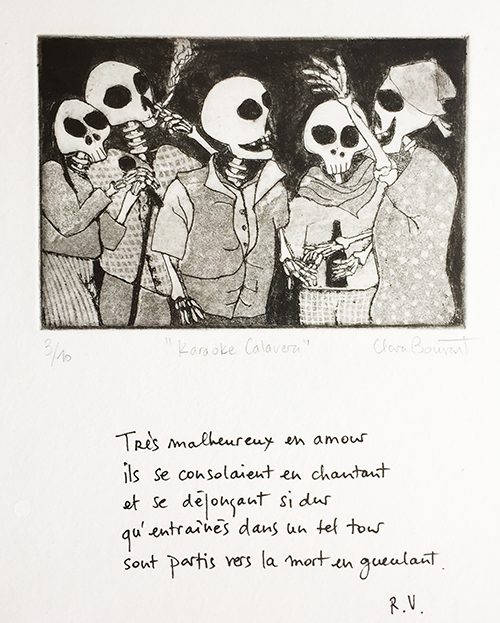 3/10 "Karaoke Calavera" Clara
Très malheureux en amour
ils se consolaient en chantant
et se défonçant si dur
qu'entraînés dans un tel tour
sont partis vers la mort en gueulant.
R.V.